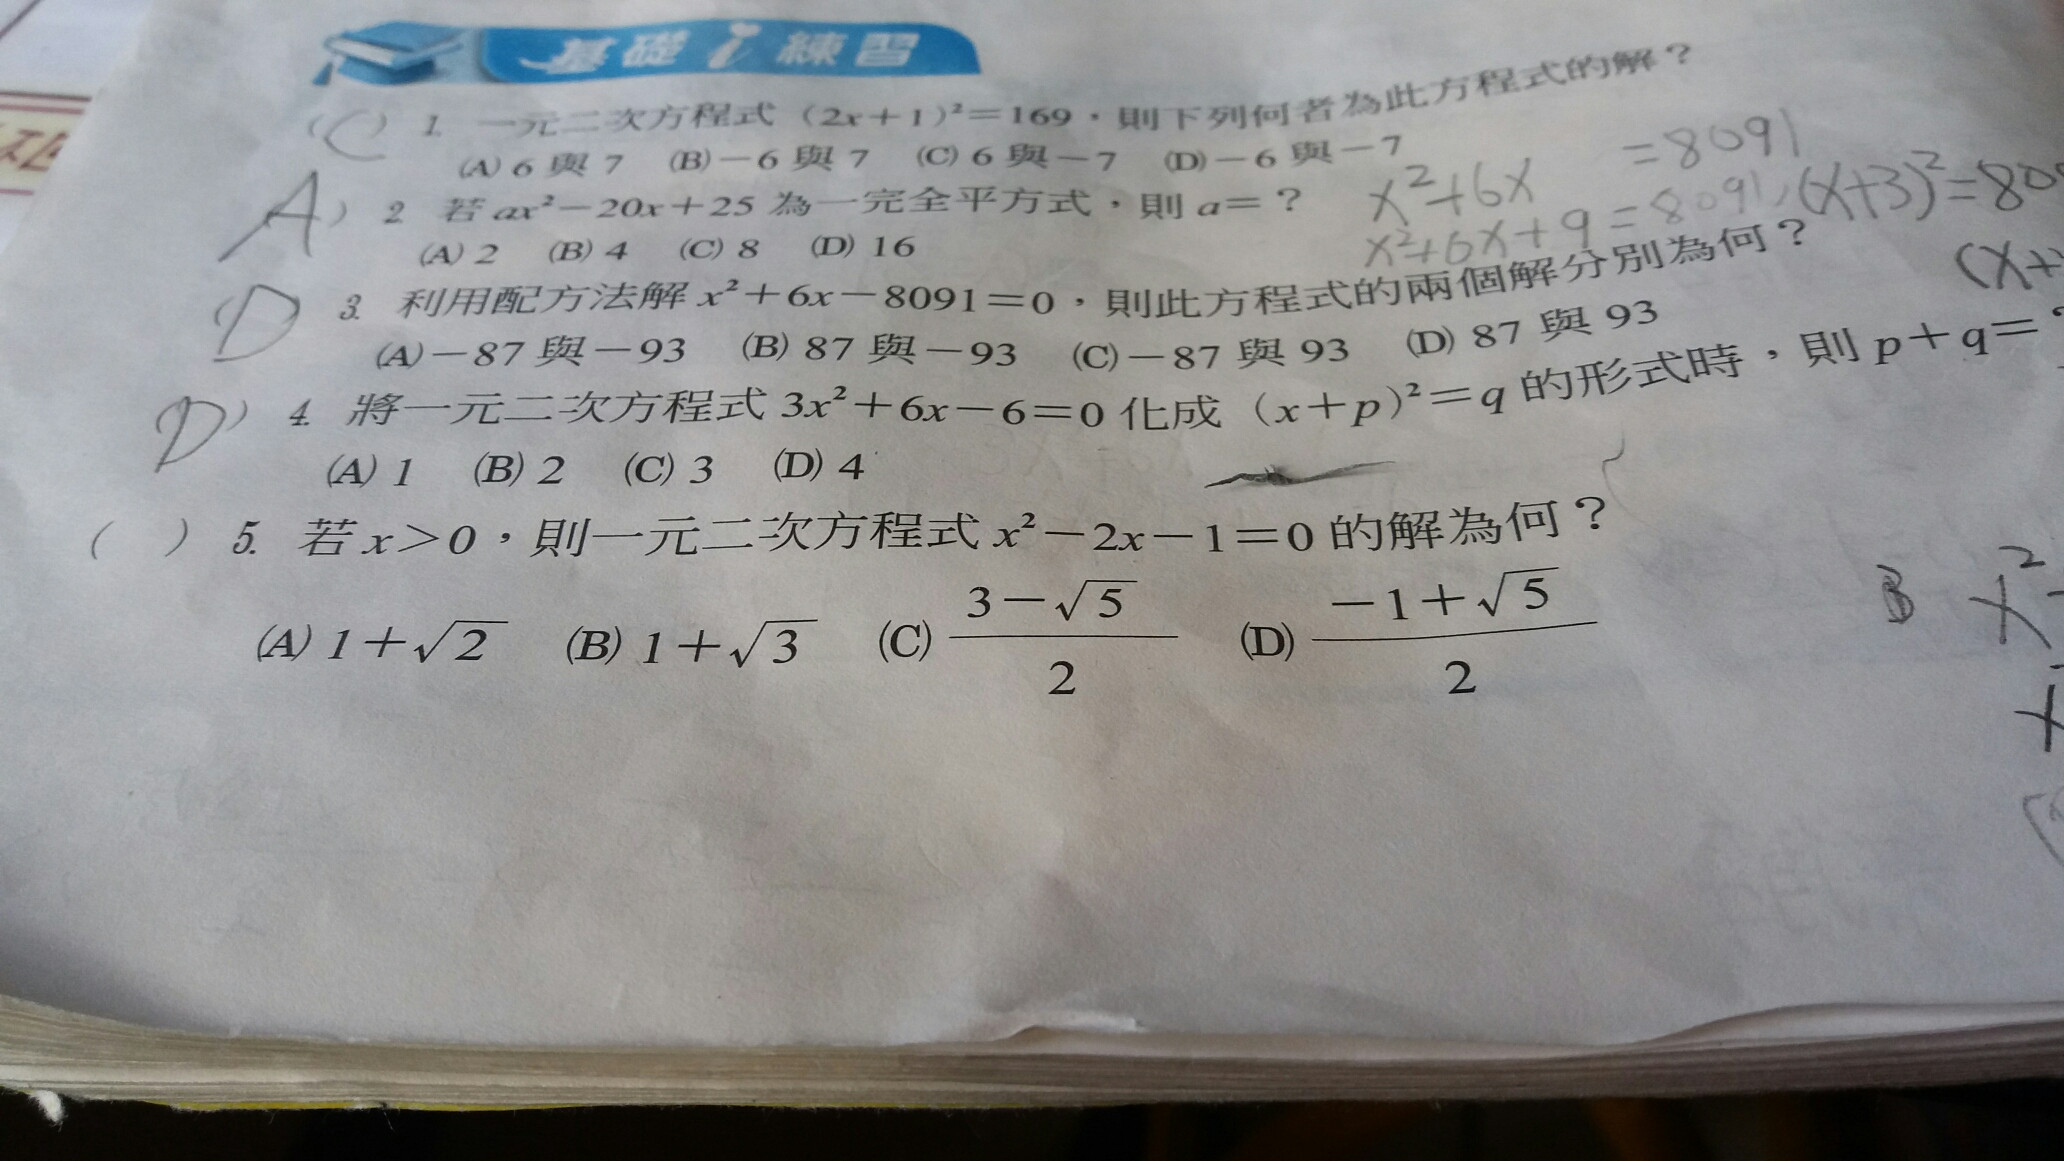 基礎 i 練習
(C) 1. 一元二次方程式 (2x+1)²=169，則下列何者為此方程式的解？
(A) 6 與 7 (B) －6 與 7 (C) 6 與－7 (D) －6 與－7
x²+6x =8091
A) 2. 若 ax²－20x+25 為一完全平方式，則 a=？
x²+6x+9=8091,(x+3)²=80
(A) 2 (B) 4 (C) 8 (D) 16
(x+
(D 3. 利用配方法解 x²+6x－8091=0，則此方程式的兩個解分別為何？
(A) －87 與－93 (B) 87 與－93 (C) －87 與 93 (D) 87 與 93
D) 4. 將一元二次方程式 3x²+6x－6=0 化成 (x+p)²=q 的形式時，則 p+q=？
(A) 1 (B) 2 (C) 3 (D) 4
( ) 5. 若 x>0，則一元二次方程式 x²－2x－1=0 的解為何？
(A) 1+√2 (B) 1+√3 (C) (3－√5)/2 (D) (－1+√5)/2
B x²